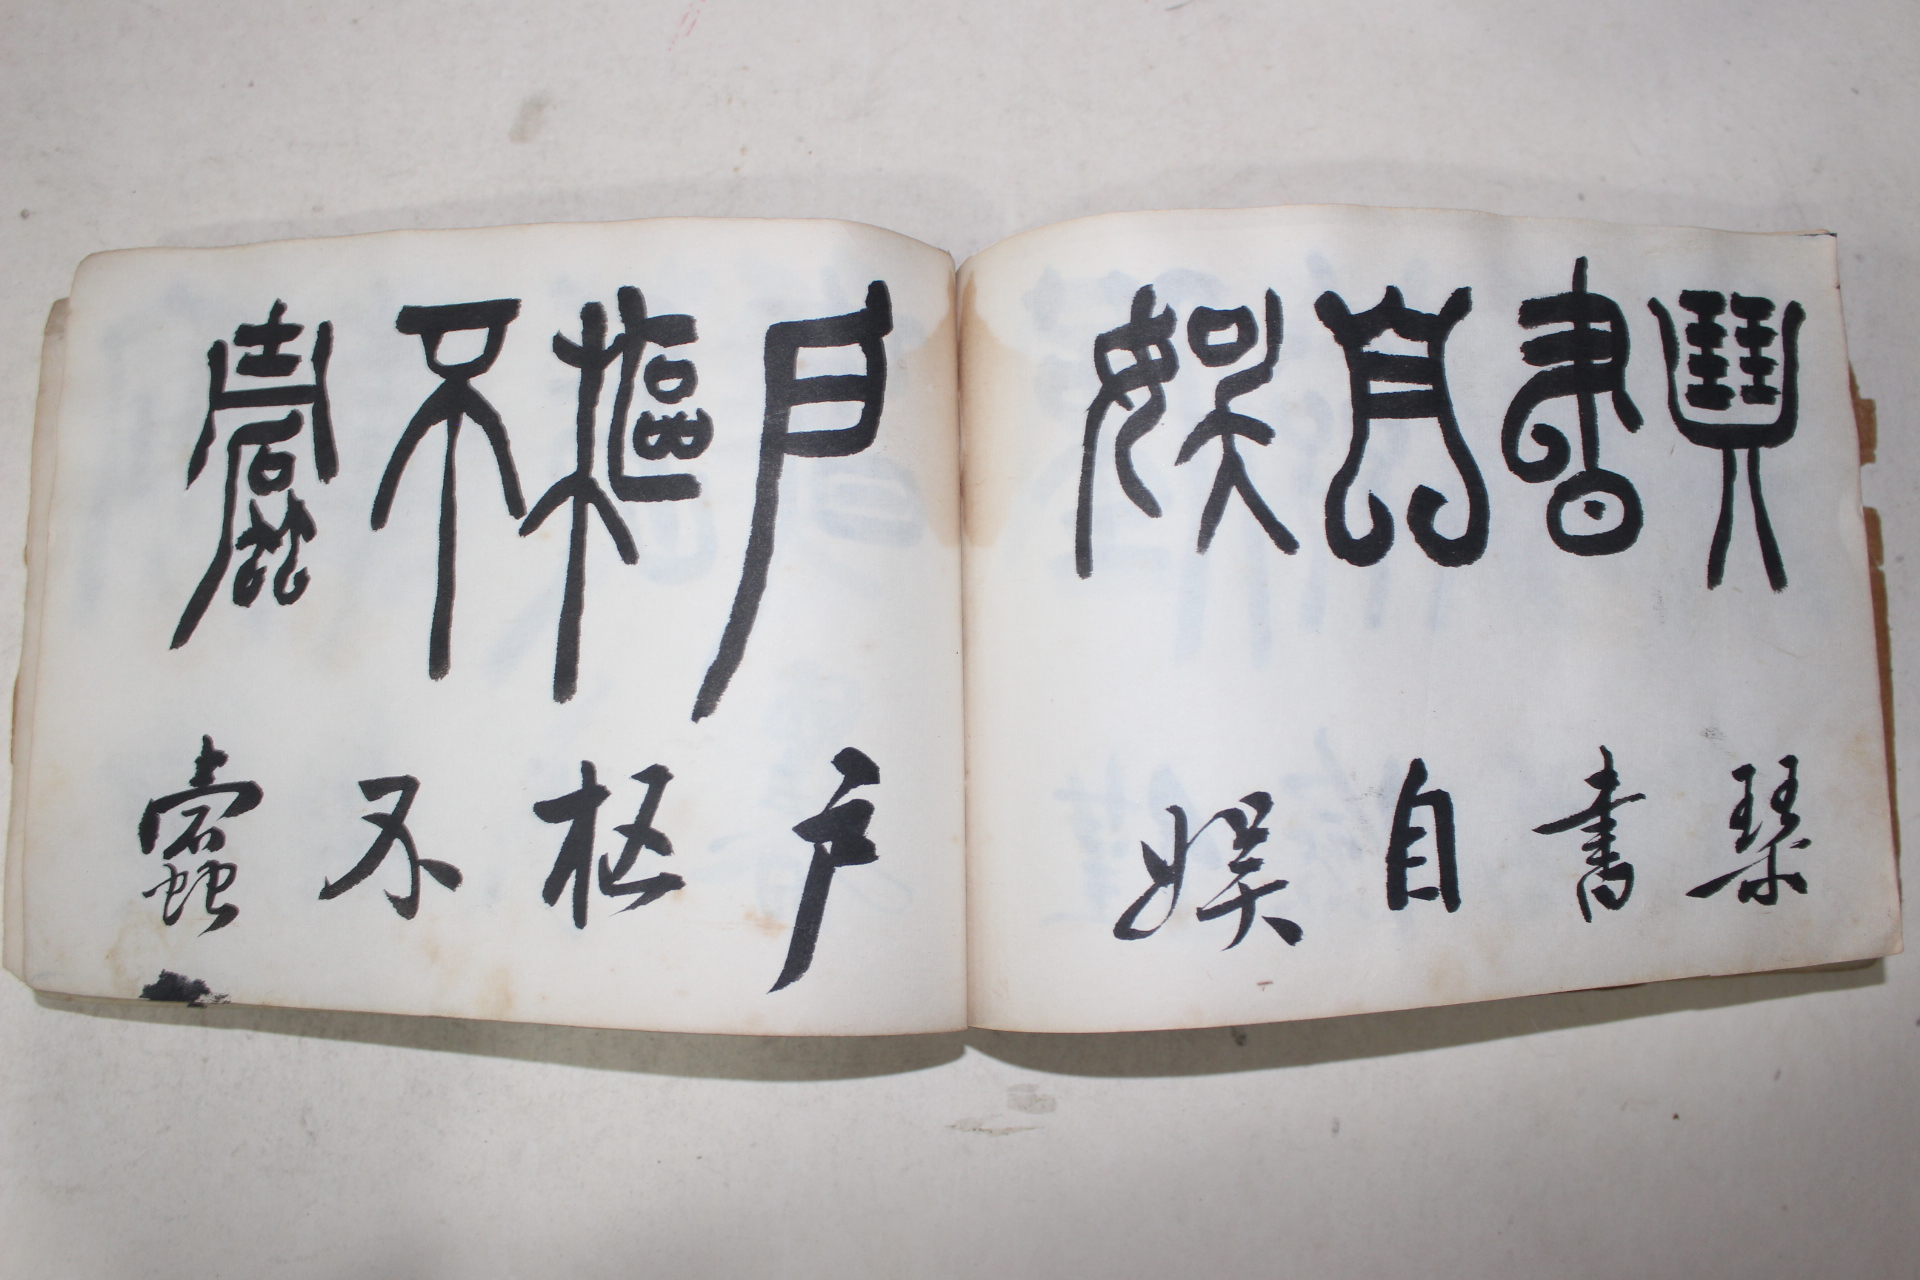 琴書自娛
琴書自娛
戶樞不蠹
戶枢不蠹